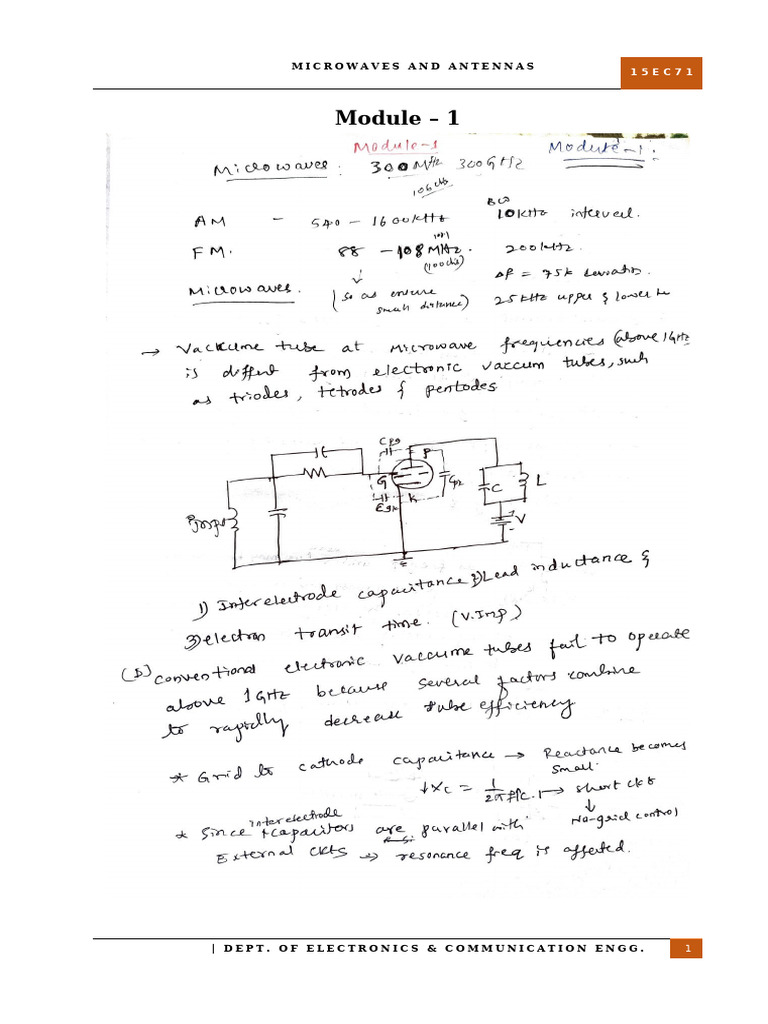 MICROWAVES AND ANTENNAS
15EC71
Module – 1
Module-1
Module-1:
Microwaves: 300MHz 300GHz
106chs
AM - 540 - 1600kHz BW 10kHz interval.
FM. 88 - 108MHz. 200kHz.
(100chs)
Microwaves. (so as ensure small distance)
Δf = 75k deviation.
25kHz upper & lower
→ Vackume tube at Microwave frequencies (above 1GHz
is diffent from electronic vaccum tubes, such
as triodes, tetrodes & pentodes
Cpg
P
G
K
C
L
V
1) Interelectrode capacitance 2) Lead inductance &
3) electron transit time. (V.Imp)
(D) conventional electronic vaccume tubes fail to operate
above 1GHz because several factors combine
to rapidly decrease tube efficiency
* Grid to cathode capacitance → Reactance becomes
small.
↓Xc = 1/2πf↑C. → short ckt
↓
No-grid control
* Since interelectrode capacitors are parallel with
External ckts → resonance freq is affected.
| DEPT. OF ELECTRONICS & COMMUNICATION ENGG.
1